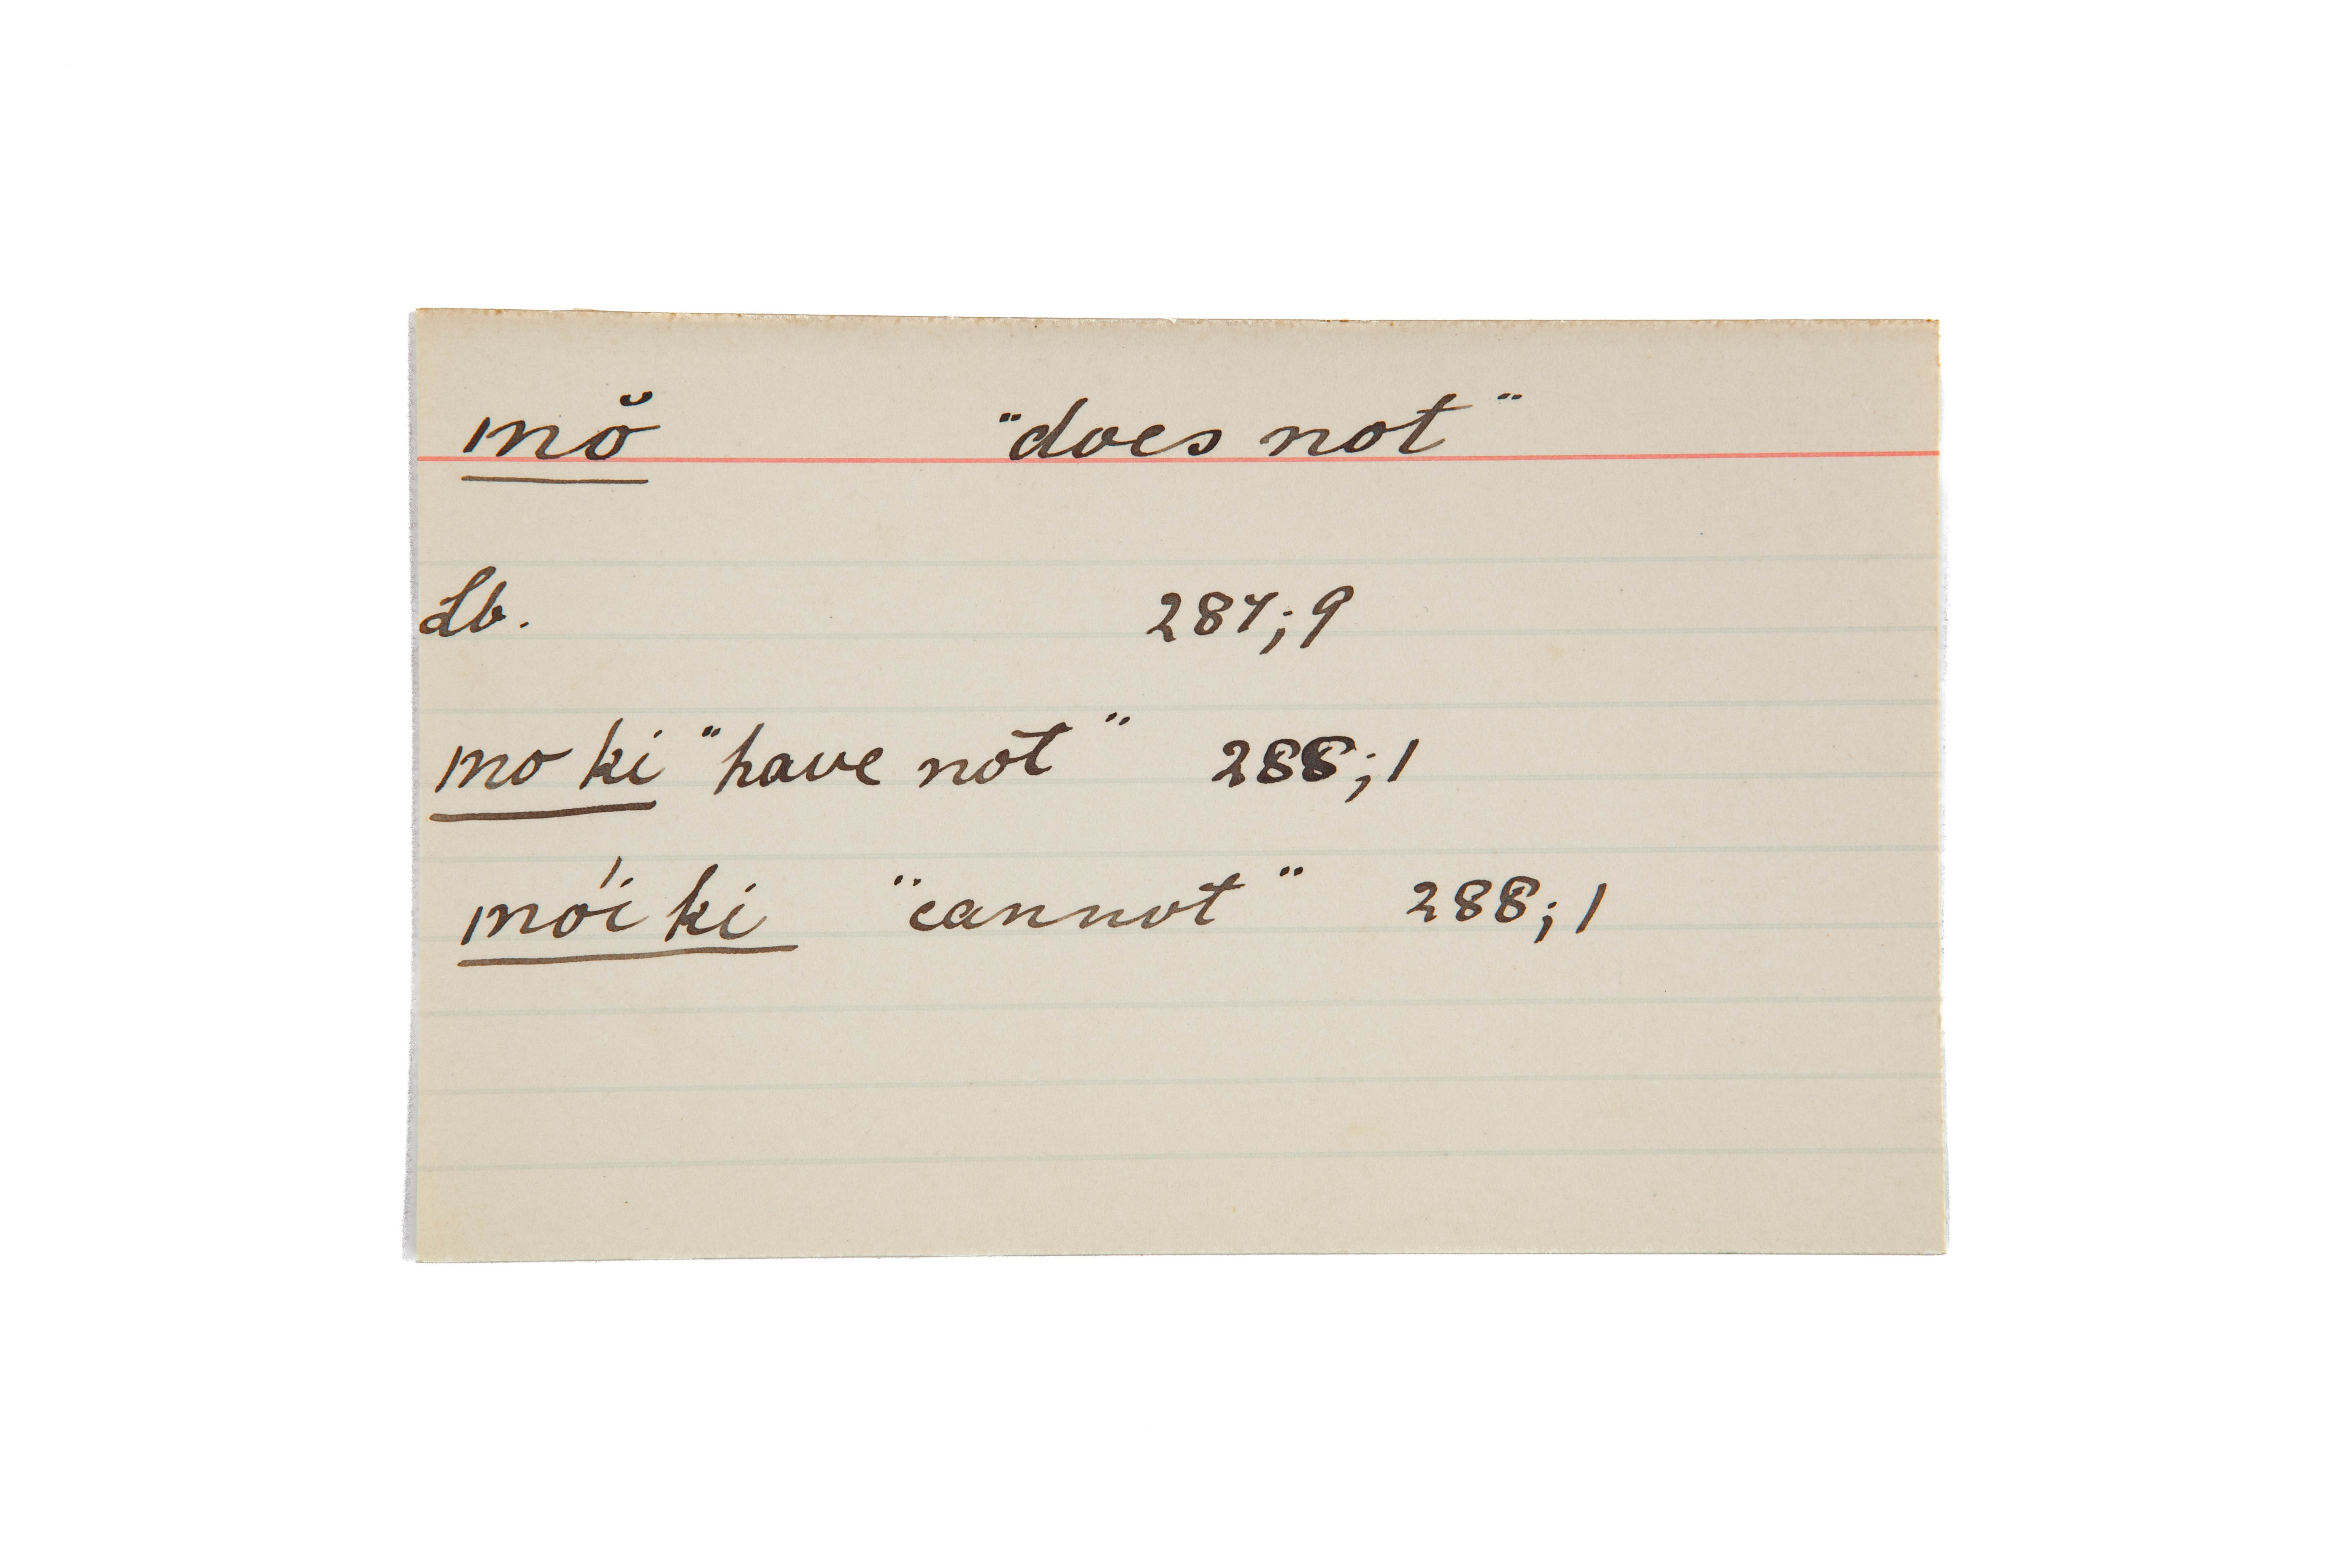 mŏ "does not"
Lb. 287;9
mo ki "have not" 288;1
mói ki "cannot" 288;1